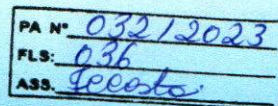 PA Nº 032/2023
FLS: 036
ASS.